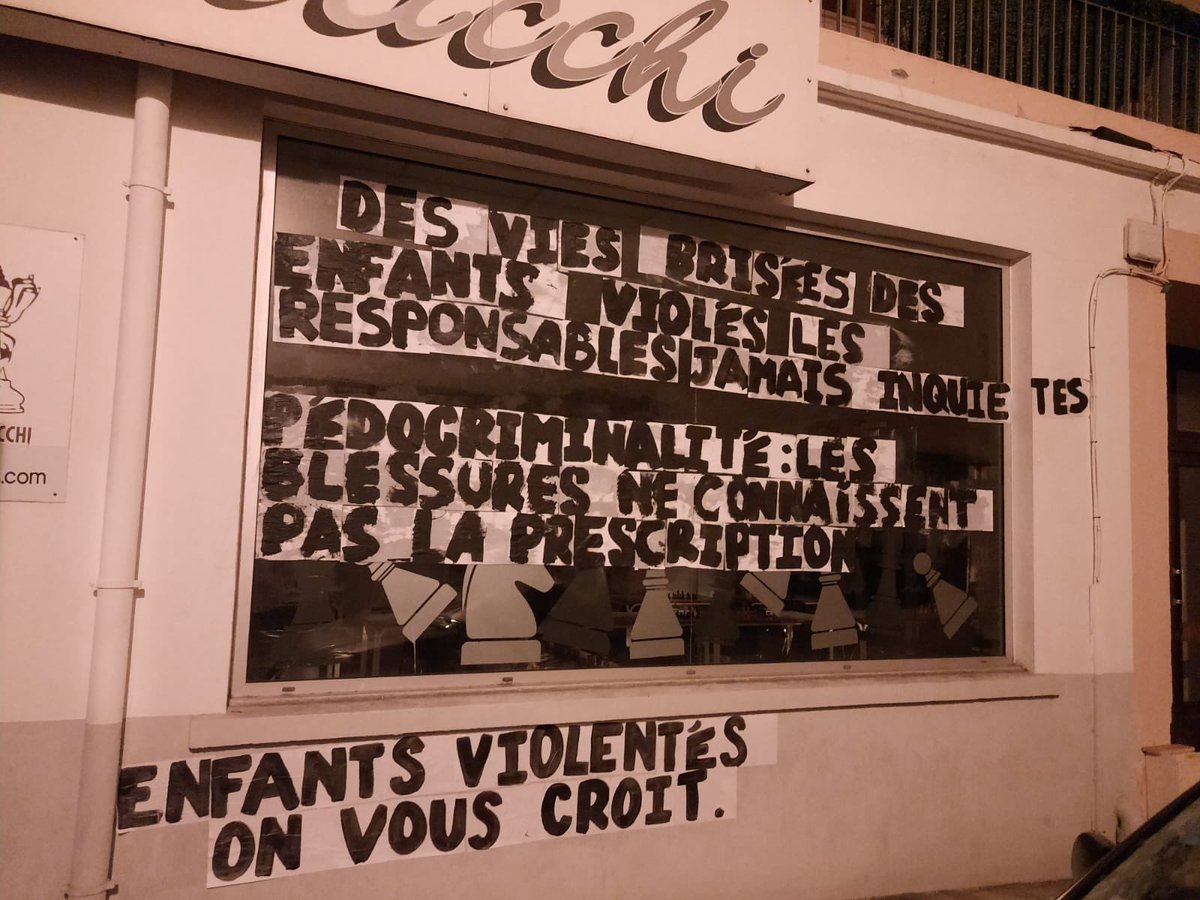 DES VIES BRISÉES DES
ENFANTS VIOLÉS LES
RESPONSABLES JAMAIS INQUIETES
PÉDOCRIMINALITÉ : LES
BLESSURES NE CONNAISSENT
PAS LA PRESCRIPTION
ENFANTS VIOLENTÉS
ON VOUS CROIT.